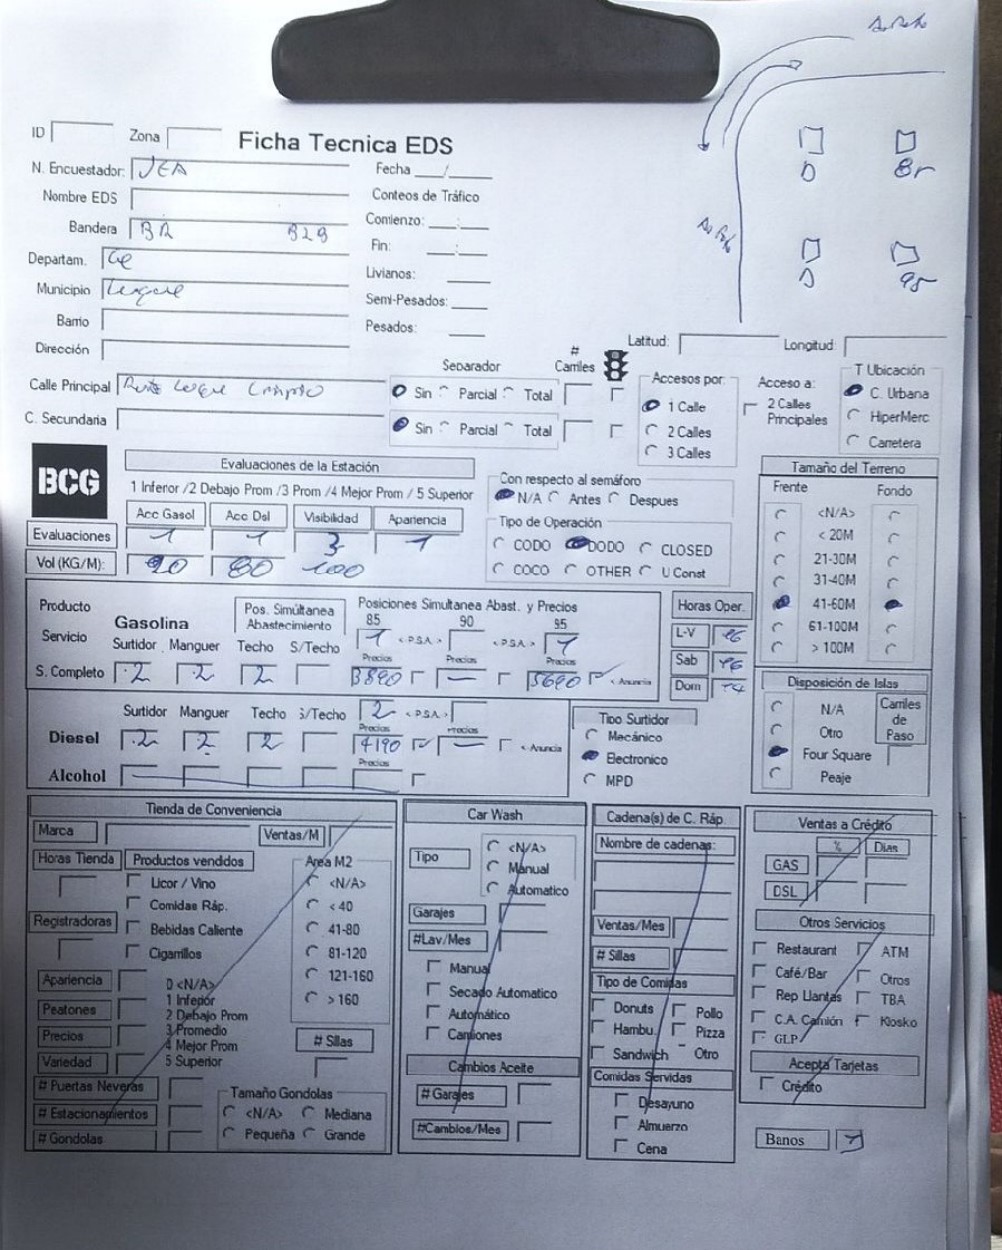 ID Zona Ficha Tecnica EDS
N. Encuestador: JEA Fecha __/__
Nombre EDS Conteos de Tráfico
Bandera BR B29 Comienzo: __:__
Departam. Ce Fin: __:__
Municipio Luque Livianos:
Barrio Semi-Pesados:
Dirección Pesados:
D Br
D 95
Latitud: Longitud:
Calle Principal Ruta Luque
C. Secundaria
Separador # Carriles
Sin Parcial Total
Sin Parcial Total
Accesos por:
1 Calle
2 Calles
3 Calles
Acceso a:
2 Calles Principales
T Ubicación
C. Urbana
HiperMerc
Carretera
BCG
Evaluaciones de la Estación
1 Inferior /2 Debajo Prom /3 Prom /4 Mejor Prom / 5 Superior
Acc Gasol Acc Dsl Visibilidad Apariencia
Evaluaciones 1 1 3 1
Vol (KG/M): 90 80 100
Con respecto al semáforo
N/A Antes Despues
Tipo de Operación
CODO DODO CLOSED
COCO OTHER U Const
Tamaño del Terreno
Frente Fondo
<N/A>
< 20M
21-30M
31-40M
41-60M
61-100M
> 100M
Producto Gasolina Pos. Simúltanea Abastecimiento Posiciones Simultanea Abast. y Precios
85 90 95
Servicio Surtidor Manguer Techo S/Techo 1 < P.S.A. > < P.S.A. > 1
Precios Precios Precios
S. Completo 2 2 2 3890 — 5690 < Anuncia
Horas Oper.
L-V 16
Sab 16
Dom 14
Surtidor Manguer Techo S/Techo 2 < P.S.A. >
Precios Precios
Diesel 2 2 2 4190 — < Anuncia
Precios
Alcohol
Tipo Surtidor
Mecánico
Electronico
MPD
Disposición de Islas
N/A
Otro
Four Square
Peaje
Carriles de Paso
Tienda de Conveniencia
Marca Ventas/M
Horas Tienda Productos venddos Area M2
Licor / Vino
Comidas Ráp.
Registradoras Bebidas Caliente
Cigarrillos
<N/A>
< 40
41-80
81-120
121-160
> 160
Apariencia
Peatones
Precios
Variedad
0 <N/A>
1 Inferior
2 Debajo Prom
3 Promedio
4 Mejor Prom
5 Superior
# Sillas
# Puertas Neveras
# Estacionamientos
# Gondolas
Tamaño Gondolas
<N/A> Mediana
Pequeña Grande
Car Wash
Tipo
<N/A>
Manual
Automatico
Garajes
#Lav/Mes
Manual
Secado Automatico
Automático
Camiones
Cambios Aceite
# Garajes
#Cambios/Mes
Cadena(s) de C. Ráp.
Nombre de cadenas:
Ventas/Mes
# Sillas
Tipo de Comidas
Donuts Pollo
Hambu. Pizza
Sandwich Otro
Comidas Servidas
Desayuno
Almuerzo
Cena
Ventas a Crédito
% Dias
GAS
DSL
Otros Servicios
Restaurant ATM
Café/Bar Otros
Rep Llantas TBA
C.A. Camión Kiosko
GLP
Acepta Tarjetas
Crédito
Banos 1